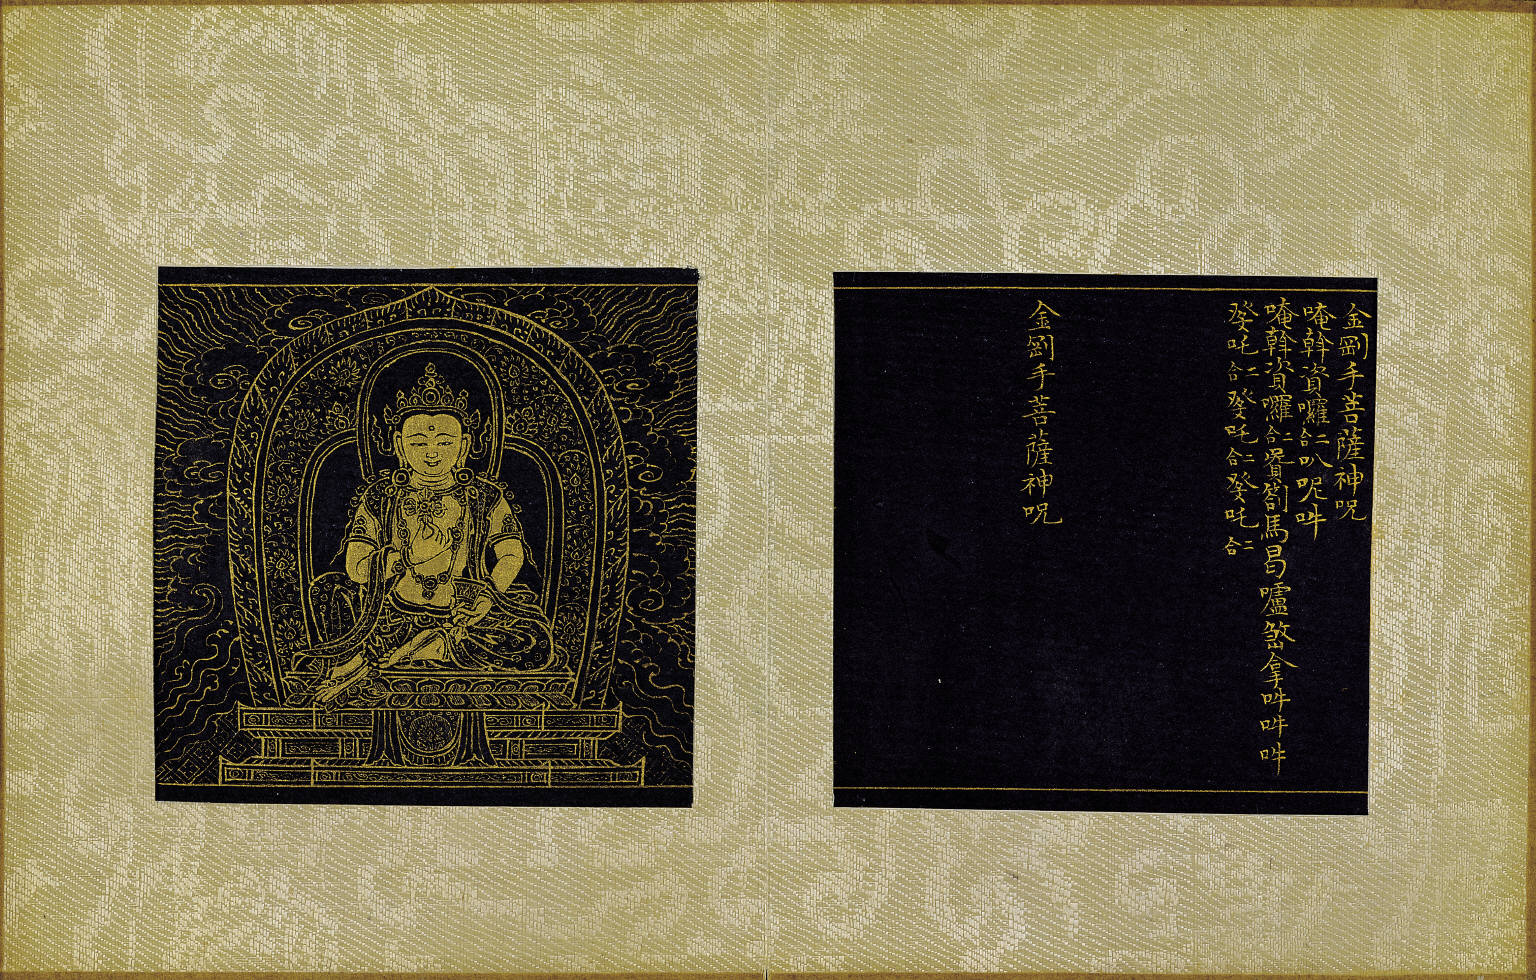 金剛手菩薩神呪
唵斡資囉二合叭呢吽
唵斡資囉二合賛馬昌嚧拿吽吽吽
癹吒二合癹吒二合癹吒二合
金剛手菩薩神呪